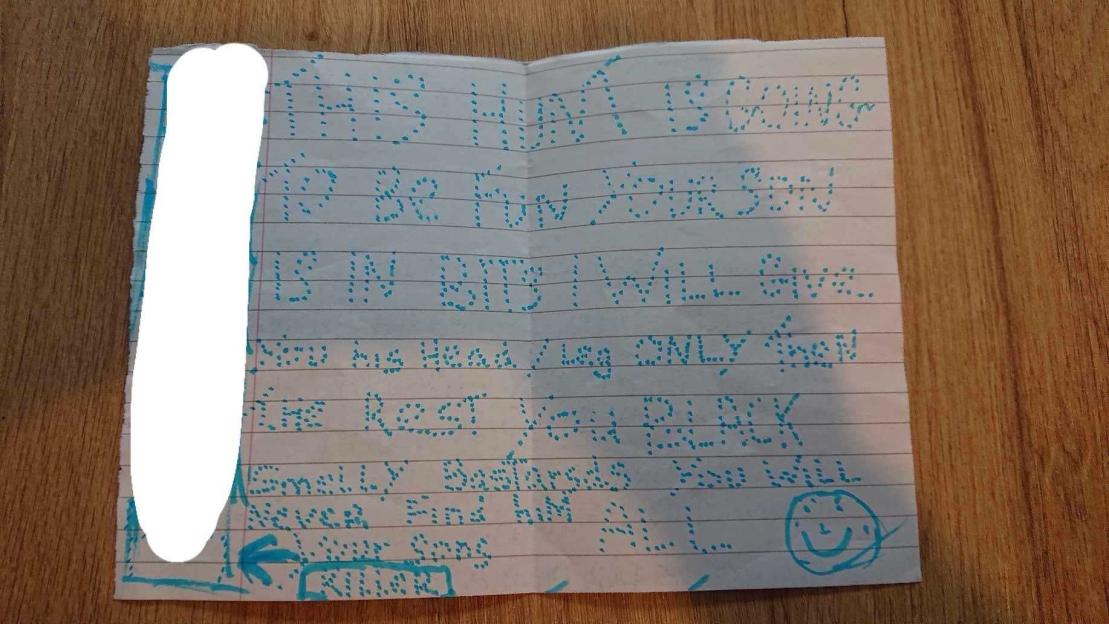 THIS HUNT IS GOING
TO Be FUN YOUR SON
IS IN BITS I WILL Give
You his Head / Leg ONLY Then
The Rest You BLACK
SmeLLY Bastards You WILL
Never Find HIM ALL
Your Sons
KILLER